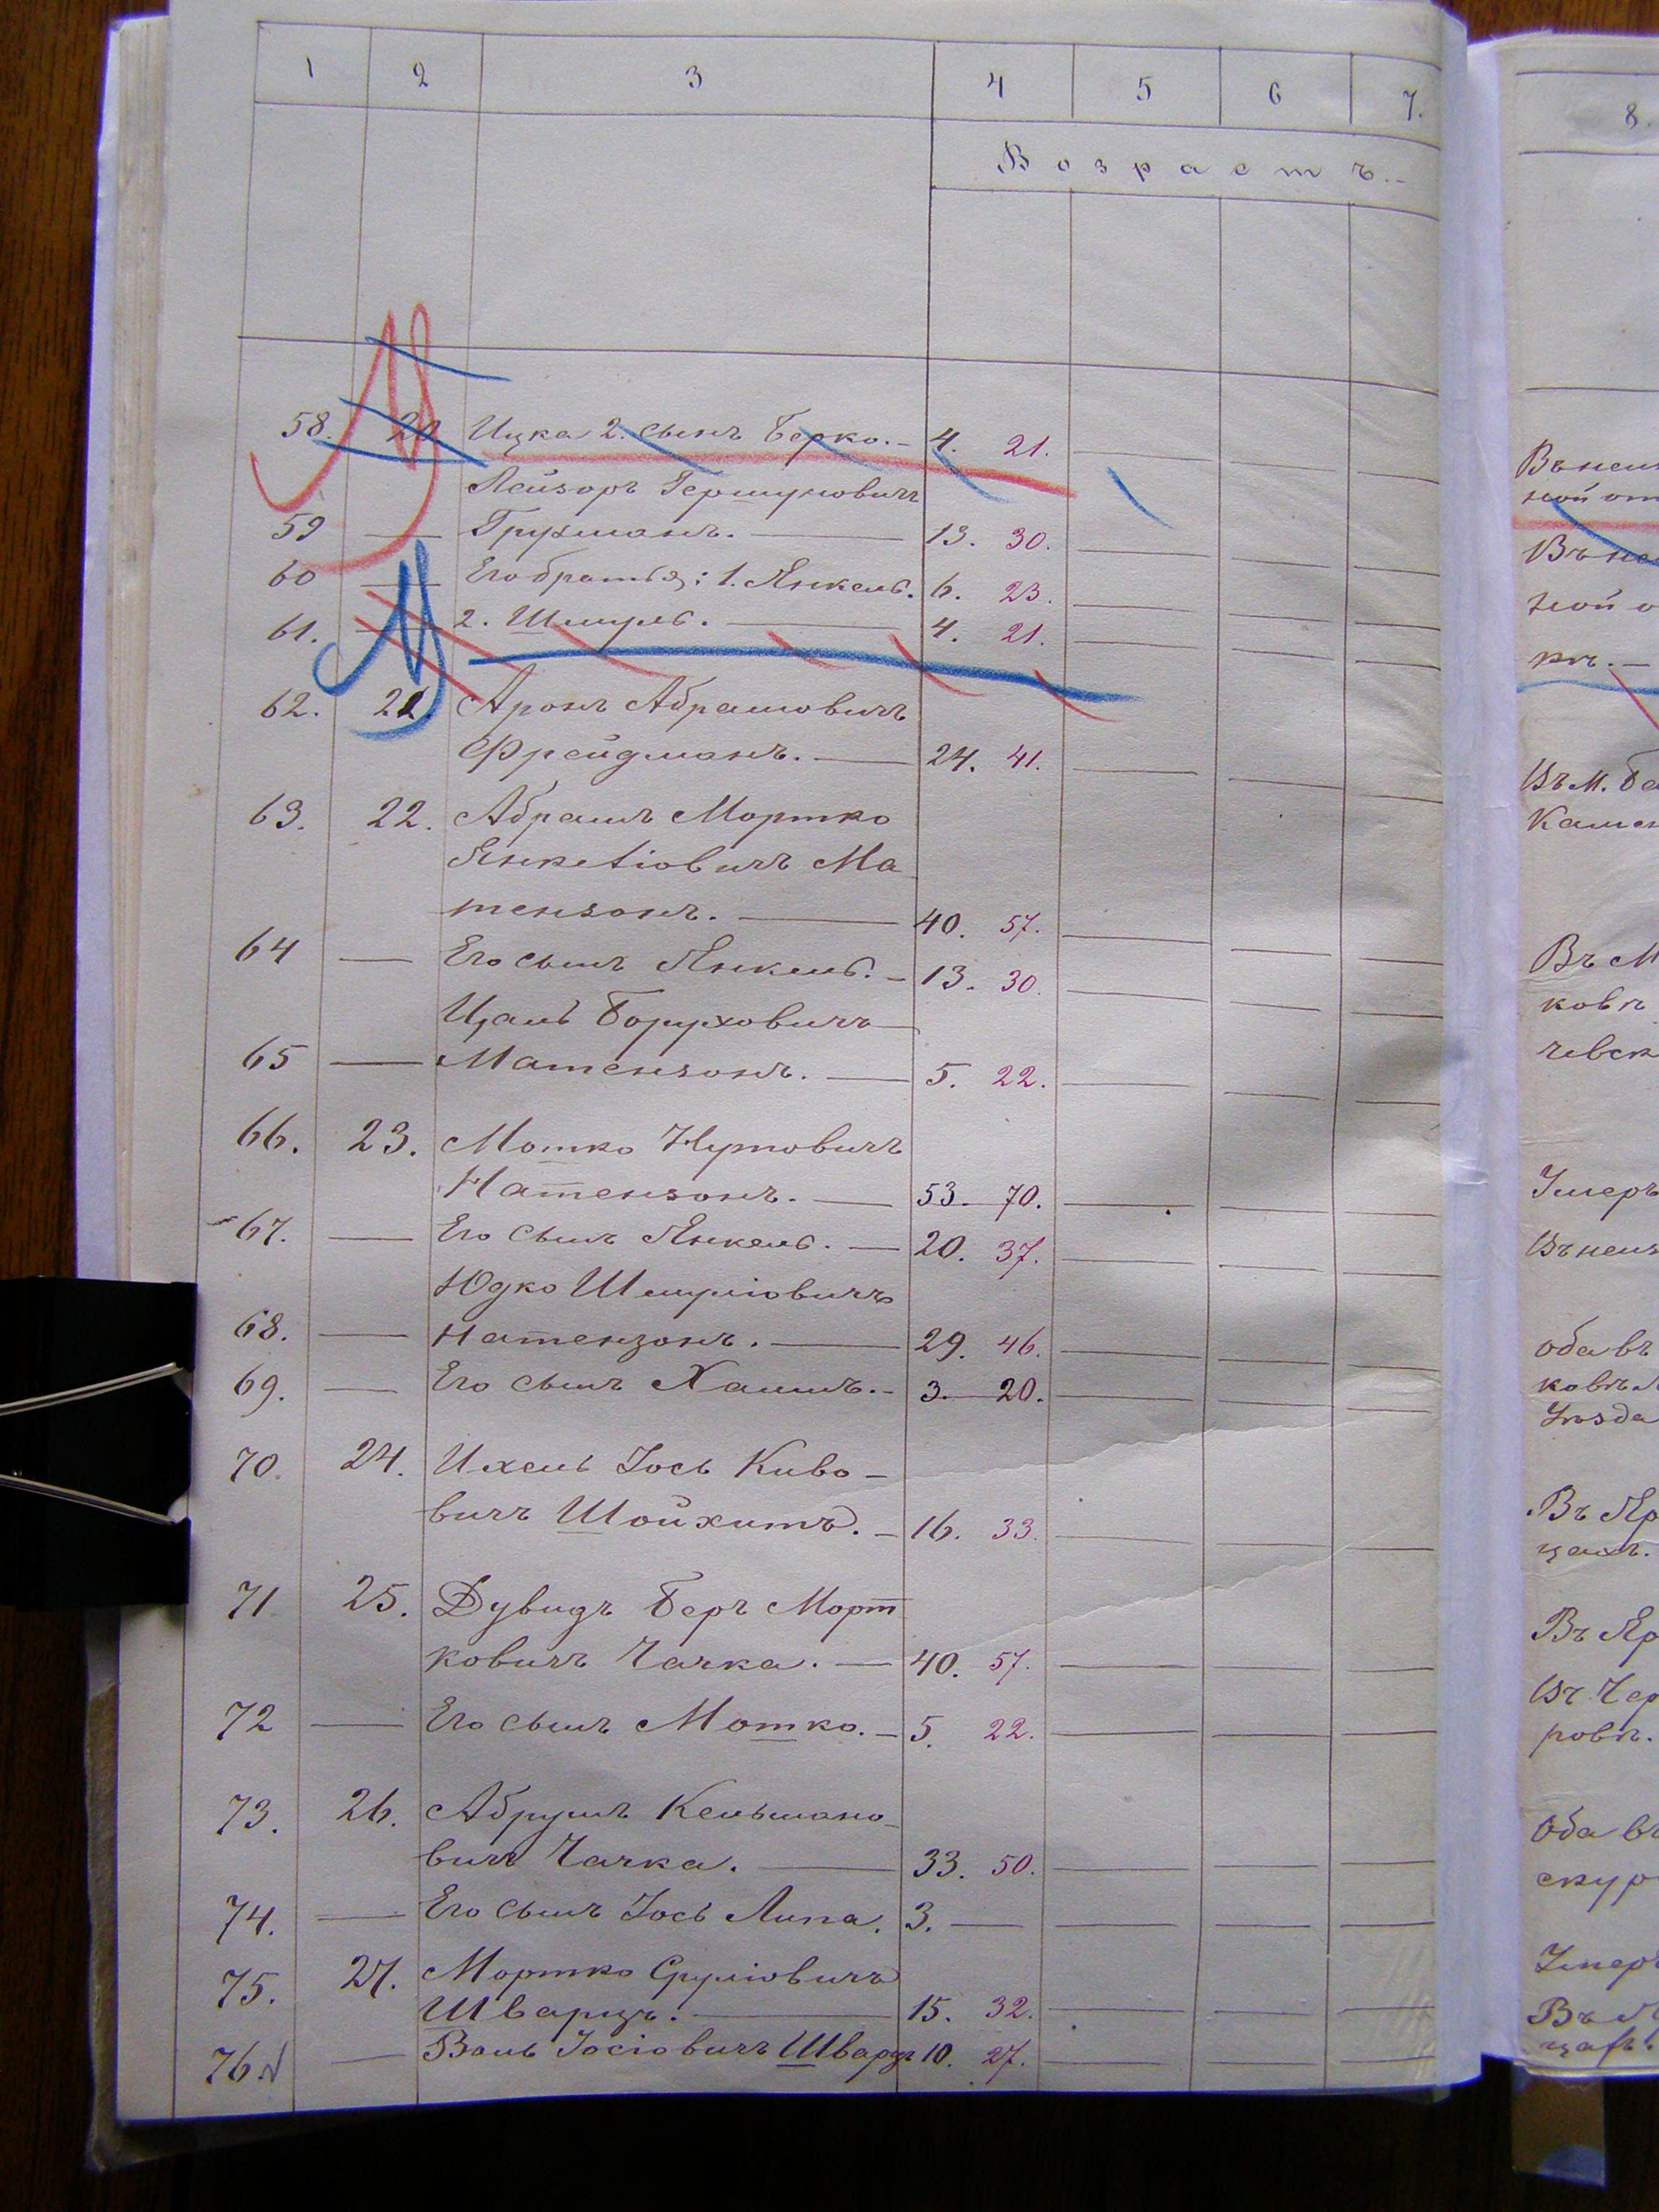 1 2 3 4 5 6 7.
Возрастъ.
58. 20 Ицка 2. сынъ Берко. 4. 21.
Лейзоръ Гершуновичъ
59 — Грухманъ. — 13. 30.
60 — Его братья: 1. Янкель. 6. 23.
61. — 2. Шмуль. — 4. 21.
62. 21 Аронъ Абрамовичъ
Фрейдманъ. — 24. 41.
63. 22. Абрамъ Мортко
Янкеліовичъ Ма
тензонъ. — 40. 57.
64 — Его сынъ Янкель. — 13. 30.
Цаль Боруховичъ
65 — Матензонъ. — 5. 22.
66. 23. Мотко Нутовичъ
Натензонъ. — 53. 70.
67. — Его сынъ Янкель. — 20. 37.
Юдко Шмуліовичъ
68. — Натензонъ. — 29. 46.
69. — Его сынъ Хаимъ. — 3. 20.
70. 24. Ихель Іось Киво-
вичъ Шойхитъ. — 16. 33.
71 25. Дувидъ Беръ Морт
ковичъ Чачка. — 40. 57.
72 — Его сынъ Мотко. — 5. 22.
73. 26. Абрумъ Кельмано-
вичъ Чачка. — 33. 50.
74. — Его сынъ Іось Липа. 3. —
75. 27. Мортко Сруліовичъ
Шварцъ. — 15. 32.
76. — Воль Іосіовичъ Шварцъ 10. 27.
8.
Въ М
ковѣ
Умеръ
оба въ
ковѣ
Уѣзда
Въ Яр
цахъ.
Въ Яр
Въ Чер
ровѣ.
Оба въ
скур
Умеръ